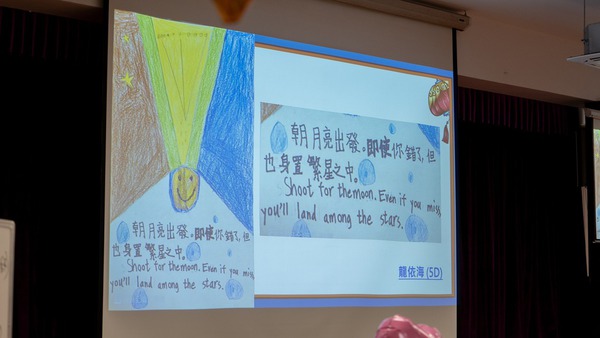 朝月亮出發。即使你錯了,但
也身置繁星之中。
Shoot for the moon. Even if you miss
you'll land among the stars.
朝月亮出發。即使你錯了,但
也身置繁星之中。
Shoot for the moon. Even if you miss,
you'll land among the stars.
龍依海 (5D)